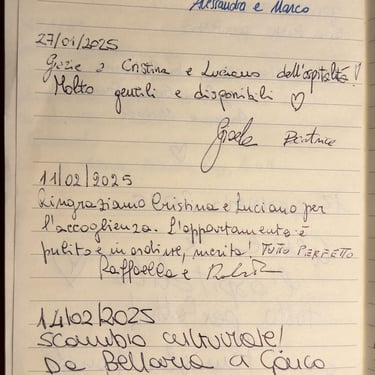 Alessandra e Marco
27/01/2025
Grazie a Cristina e Luciano dell'ospitalità!
Molto gentili e disponibili ♡
Beatrice
11/02/2025
Ringraziamo Cristina e Luciano per
l'accoglienza. L'appartamento è
pulito e in ordine, merita! TUTTO PERFETTO
Raffaella e
14/02/2025
Scambio culturale!
Da Bellaria a